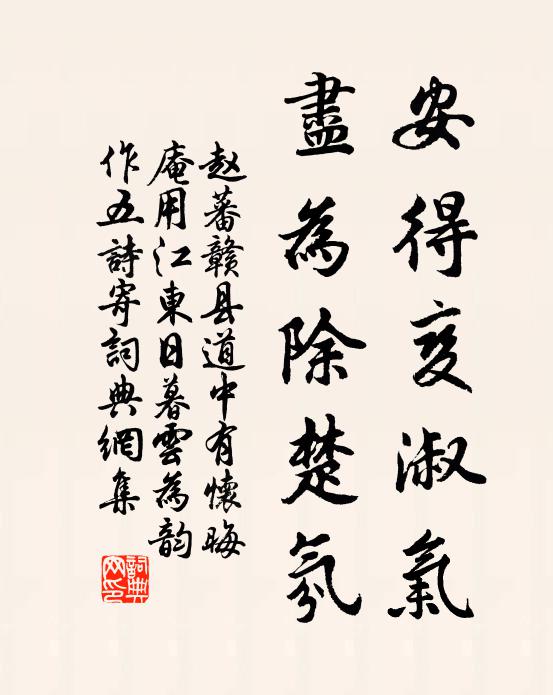 安得变淑氣
盡為除楚氛
赵蕃赣县道中有懷晦
庵用江東日暮雲為韵
作五詩寄詞典網集
詞典
网印